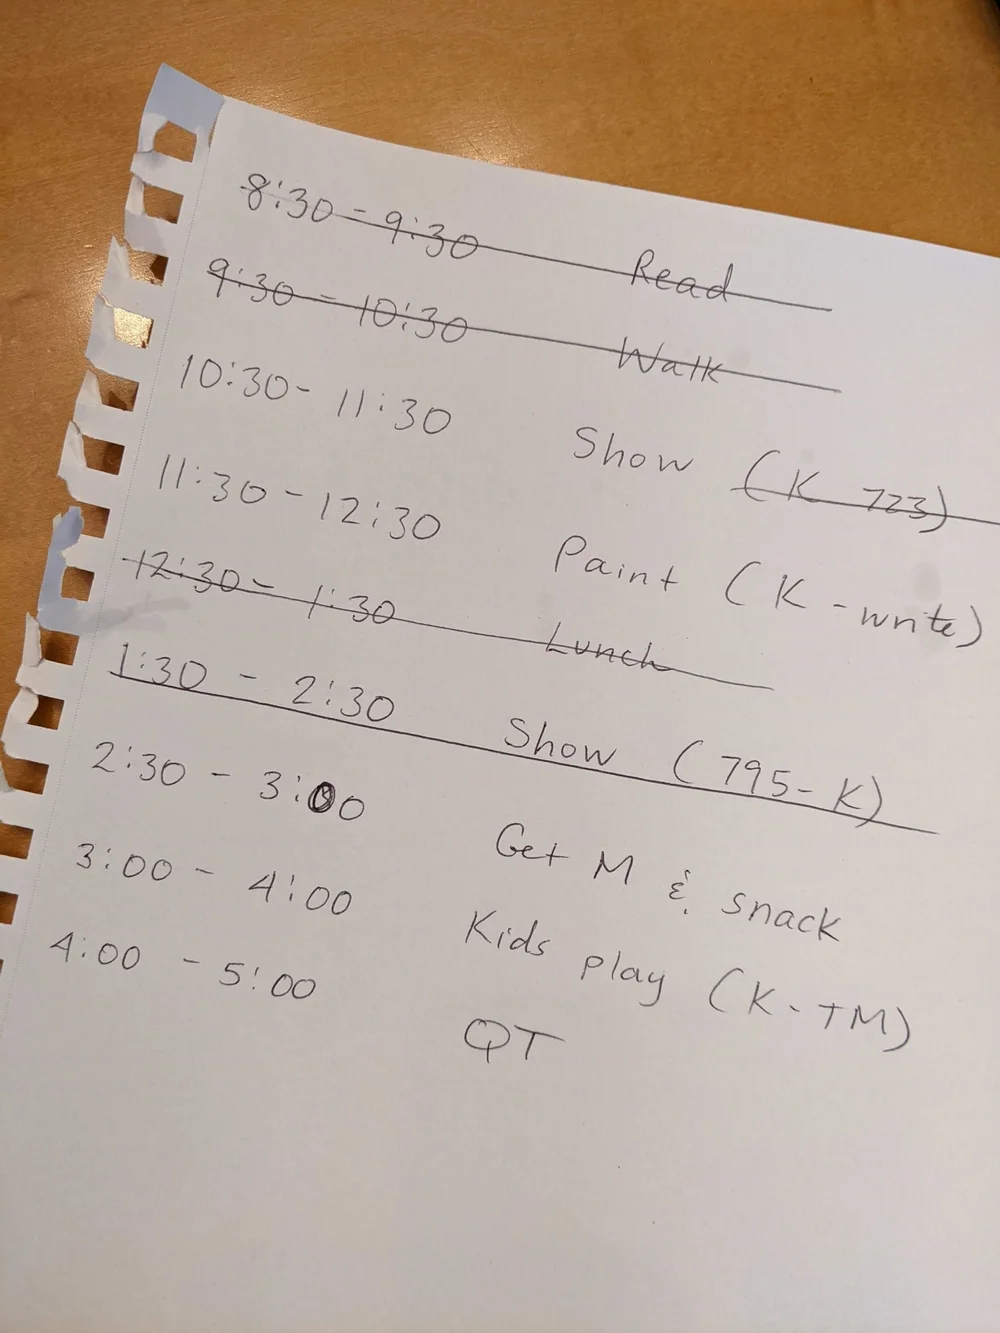 8:30 - 9:30 Read
9:30 - 10:30 Walk
10:30 - 11:30 Show (K 723)
11:30 - 12:30 Paint (K - write)
12:30 - 1:30 Lunch
1:30 - 2:30 Show (795 - K)
2:30 - 3:00 Get M & snack
3:00 - 4:00 Kids play (K - TM)
4:00 - 5:00 QT